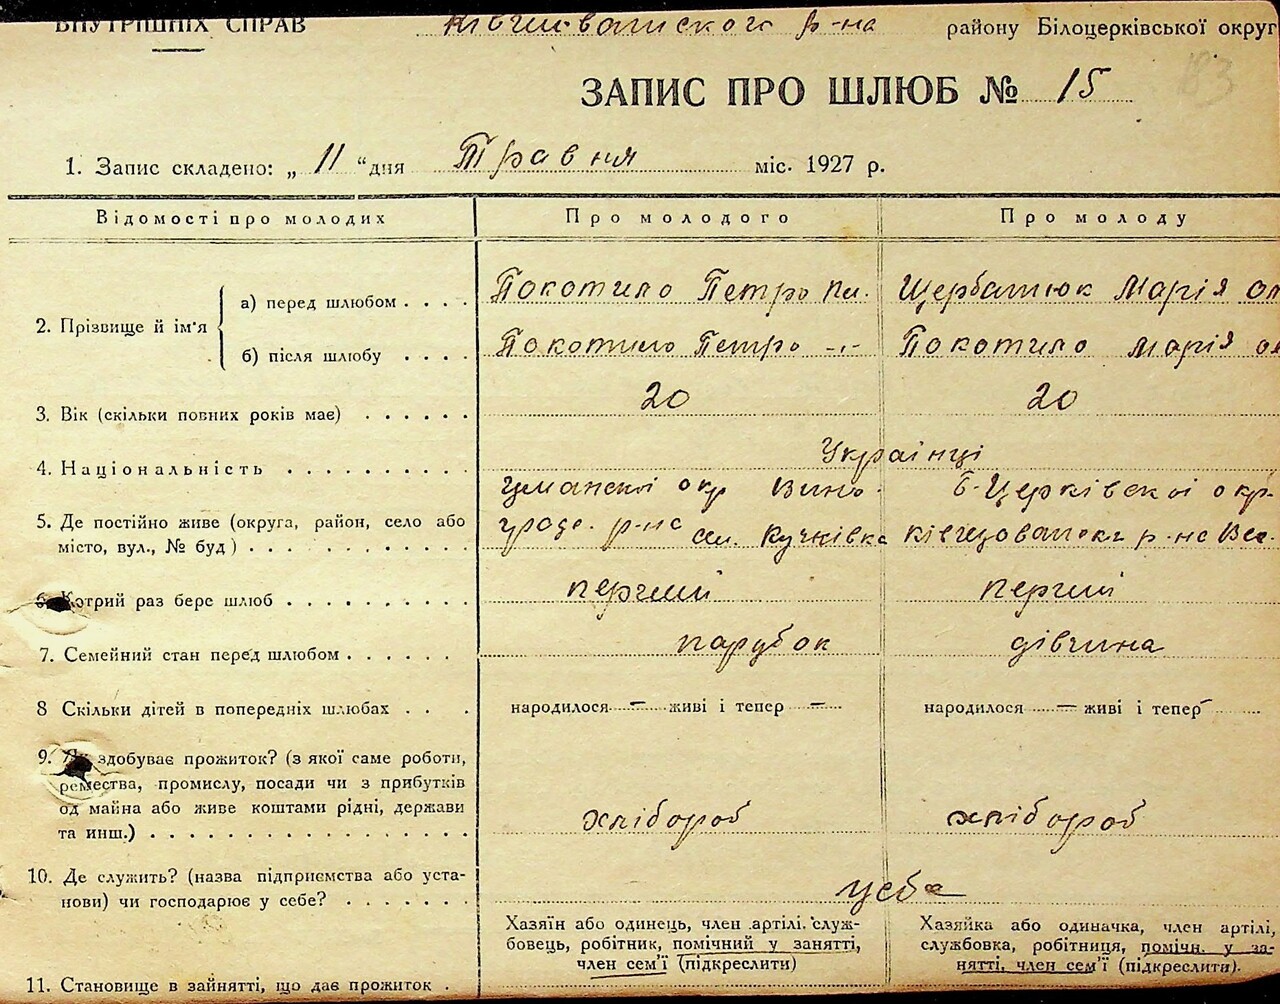 ВНУТРІШНІХ СПРАВ р-на району Білоцерківської округ
ЗАПИС ПРО ШЛЮБ № 15
183
1. Запис складено: „ 11 “ дня Травня міс. 1927 р.
Відомості про молодих Про молодого Про молоду
2. Прізвище й ім'я
а) перед шлюбом . . . . Покотило Петро Щербатюк Марія
б) після шлюбу . . . . Покотило Петро -,- Покотило Марія
3. Вік (скільки повних років має) . . . . . . 20 20
4. Національність . . . . . . . . . . Українці
Уманської окр Вино- Б-Церківскої окр-
5. Де постійно живе (округа, район, село або
град. р-на сел. Кучківка р-на
місто, вул., № буд) . . . . . . . . . . . .
6. Котрий раз бере шлюб . . . . . . . . . . перший перший
7. Семейний стан перед шлюбом . . . . . . . парубок дівчина
8 Скільки дітей в попередніх шлюбах . . . народилося — живі і тепер — народилося — живі і тепер —
9. Як здобуває прожиток? (з якої саме роботи,
ремества, промислу, посади чи з прибутків
од майна або живе коштами рідні, держави
та инш.) . . . . . . . . . . . . . . . . . хлібороб хлібороб
10. Де служить? (назва підприємства або уста-
нови) чи господарює у себе? . . . . . . . у себе
Хазяїн або одинець, член артілі, служ-
бовець, робітник, помічний у занятті,
член сем'ї (підкреслити)
Хазяйка або одиначка, член артілі,
службовка, робітниця, помічн. у за-
нятті, член сем'ї (підкреслити).
11. Становище в зайнятті, що дає прожиток .